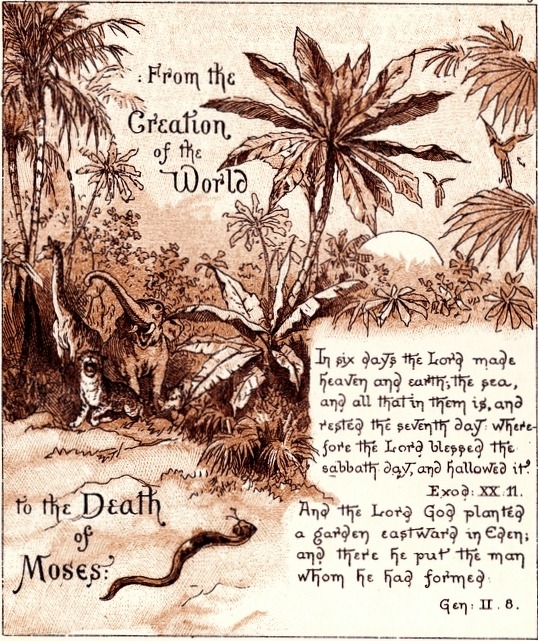 : From the
Creation
of the
World
In six days the Lord made
heaven and earth; the sea,
and all that in them is, and
rested the seventh day: where-
fore the Lord blessed the
sabbath day, and hallowed it."
Exod: XX. 11.
And the Lord God planted
a garden eastward in Eden;
and there he put the man
whom he had formed
Gen: II. 8.
to the Death
of
Moses: